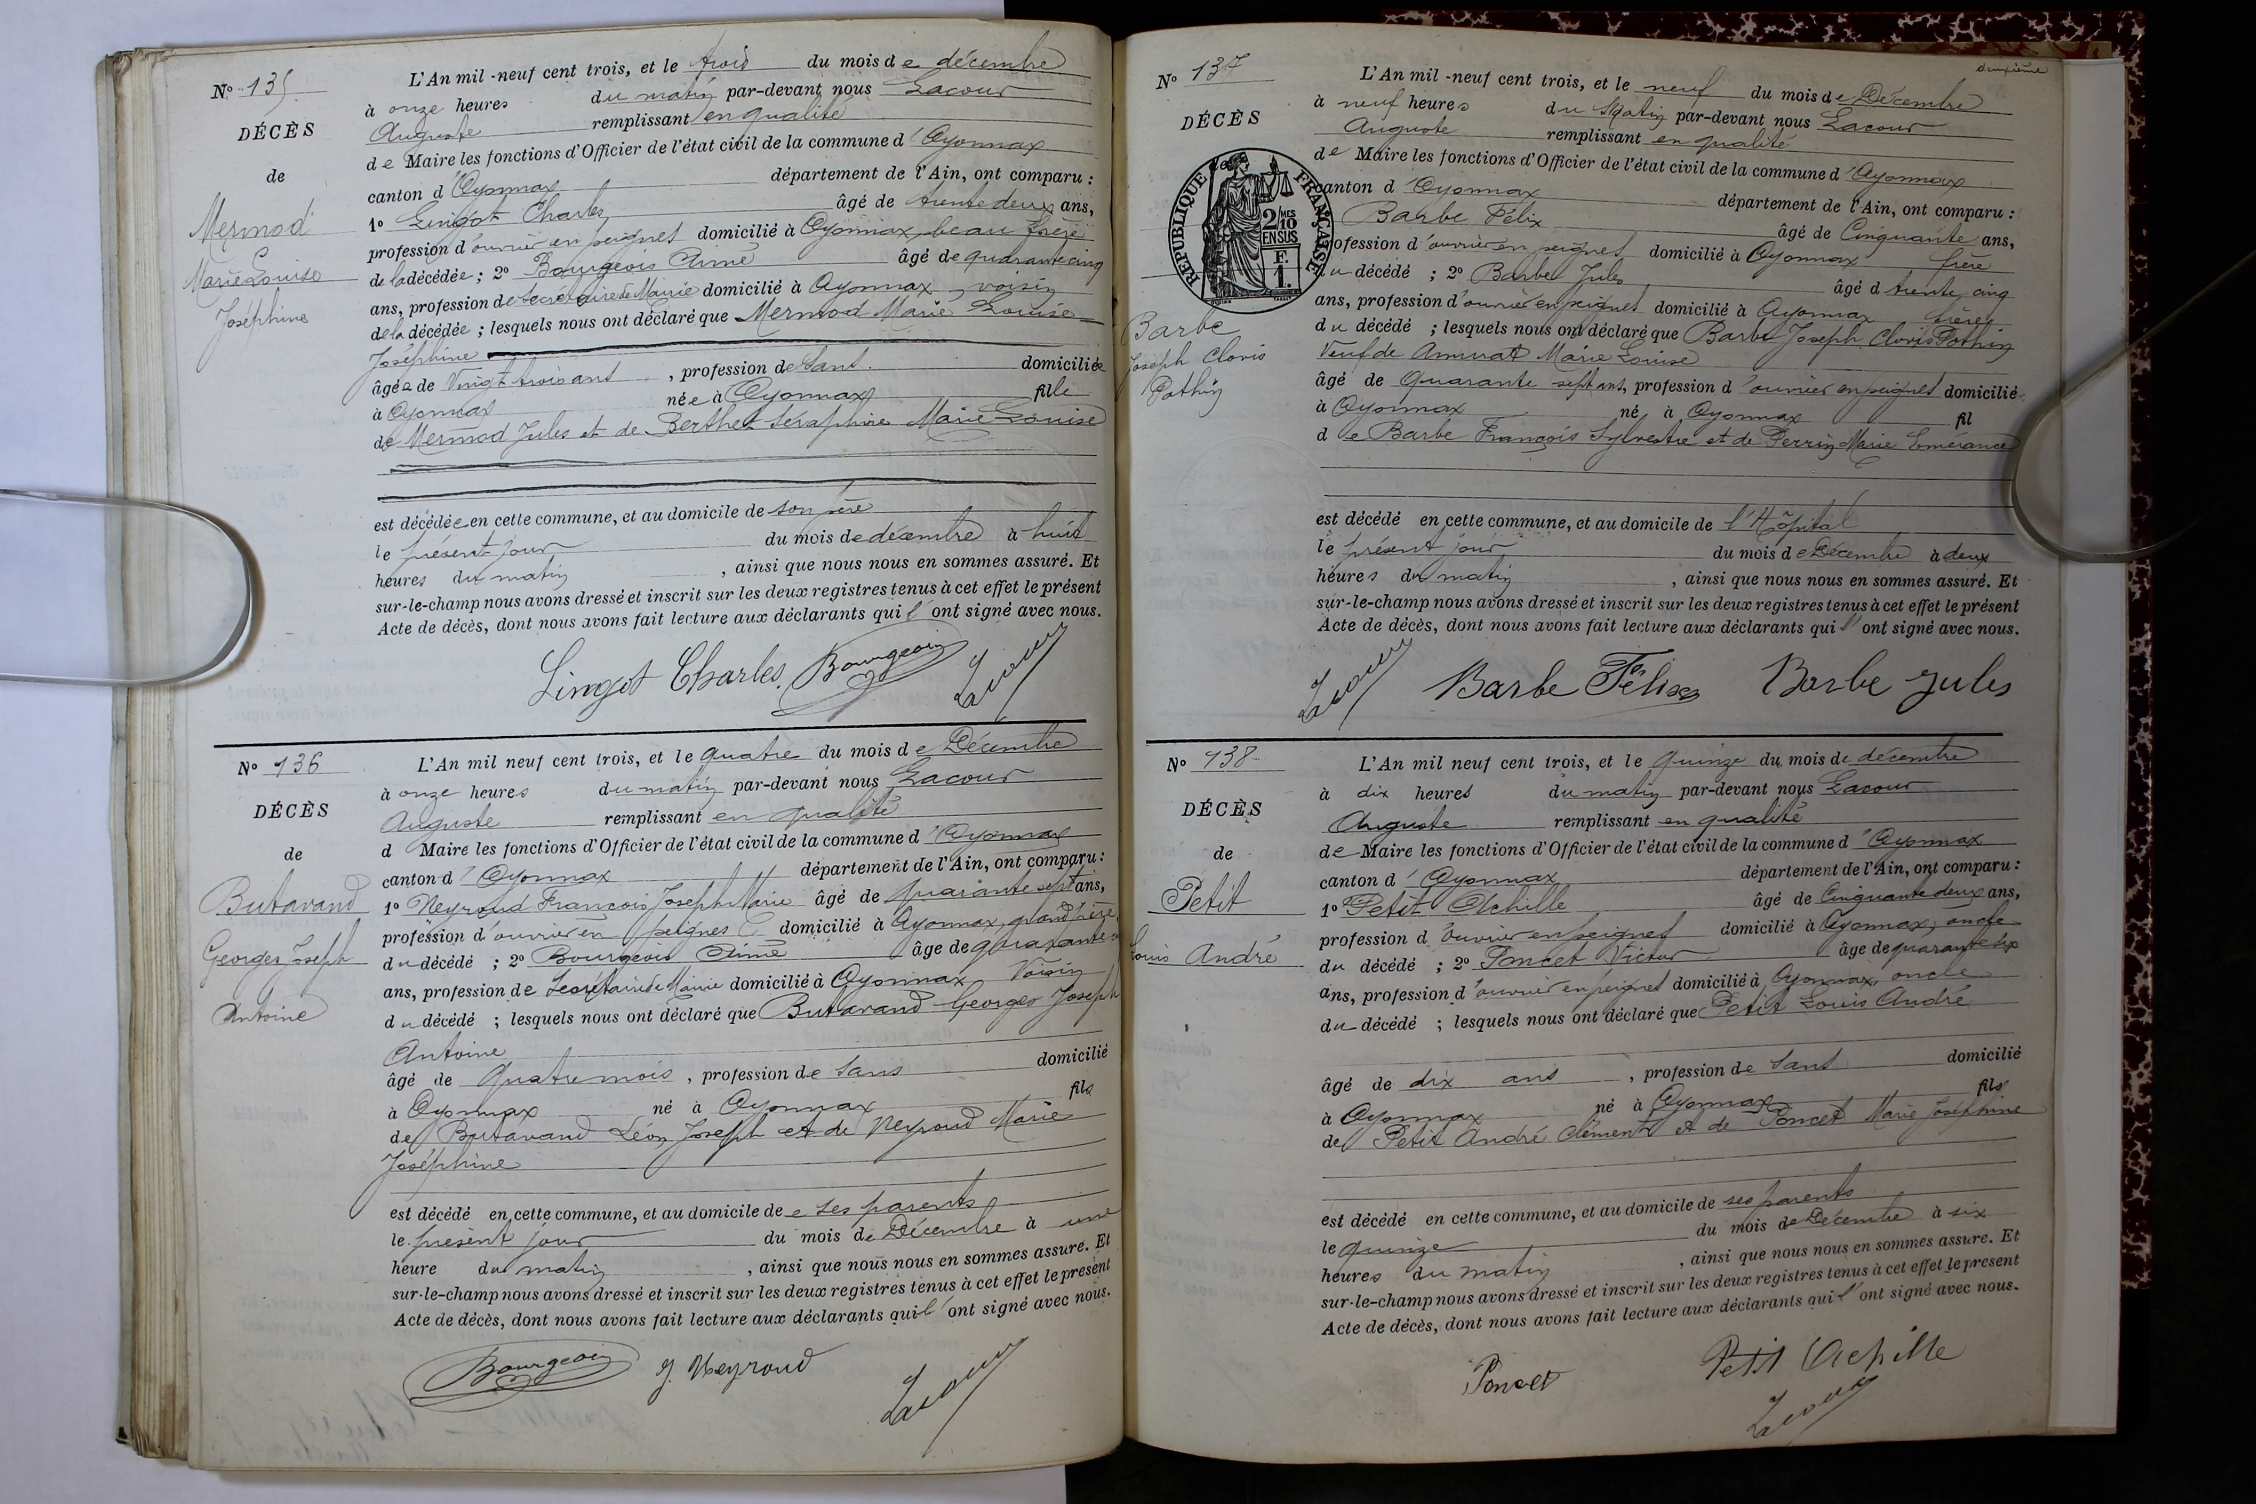 Nº 135
DÉCÈS
de
Mermod
Marie Louise
Joséphine
L'An mil-neuf cent trois, et le trois du mois de décembre
à onze heures du matin par-devant nous Lacour
Auguste remplissant en qualité
de Maire les fonctions d'Officier de l'état civil de la commune d'Oyonnax
canton d'Oyonnax département de l'Ain, ont comparu :
1º Lingot Charles âgé de trente deux ans,
profession d'ouvrier en peignes domicilié à Oyonnax, beau frère
de la décédée ; 2º Bourgeois Aimé âgé de quarante cinq
ans, profession de Secrétaire de Mairie domicilié à Oyonnax, voisin
de la décédée ; lesquels nous ont déclaré que Mermod Marie Louise
Joséphine
âgée de Vingt trois ans, profession de Sans domiciliée
à Oyonnax née à Oyonnax fille
de Mermod Jules et de Berthet Séraphine Marie Louise
est décédée en cette commune, et au domicile de son père
le présent jour du mois de décembre à huit
heures du matin, ainsi que nous nous en sommes assuré. Et
sur-le-champ nous avons dressé et inscrit sur les deux registres tenus à cet effet le présent
Acte de décès, dont nous avons fait lecture aux déclarants qui l'ont signé avec nous.
Lingot Charles. Bourgeois Lacour
Nº 136
DÉCÈS
de
Butavand
Georges Joseph
Antoine
L'An mil neuf cent trois, et le quatre du mois de Décembre
à onze heures du matin par-devant nous Lacour
Auguste remplissant en qualité
d Maire les fonctions d'Officier de l'état civil de la commune d'Oyonnax
canton d'Oyonnax département de l'Ain, ont comparu :
1º Neyroud François Joseph Marie âgé de quarante sept ans,
profession d'ouvrier en peignes domicilié à Oyonnax, grand père
du décédé ; 2º Bourgeois Aimé âgé de quarante
ans, profession de Secrétaire de Mairie domicilié à Oyonnax Voisin
du décédé ; lesquels nous ont déclaré que Butavand Georges Joseph
Antoine
âgé de quatre mois, profession de Sans domicilié
à Oyonnax né à Oyonnax fils
de Butavand Léon Joseph et de Neyroud Marie
Joséphine
est décédé en cette commune, et au domicile de e ses parents
le présent jour du mois de Décembre à une
heure du matin, ainsi que nous nous en sommes assuré. Et
sur-le-champ nous avons dressé et inscrit sur les deux registres tenus à cet effet le présent
Acte de décès, dont nous avons fait lecture aux déclarants qui l'ont signé avec nous.
Bourgeois J. Neyroud Lacour
deuxième
Nº 137
DÉCÈS
de
RÉPUBLIQUE FRANÇAISE
2/10 MES
EN SUS
F.
1.
Barbe
Joseph Clovis
Pothin
L'An mil-neuf cent trois, et le neuf du mois de Décembre
à neuf heures du Matin par-devant nous Lacour
Auguste remplissant en qualité
de Maire les fonctions d'Officier de l'état civil de la commune d'Oyonnax
canton d'Oyonnax département de l'Ain, ont comparu :
Barbe Félix âgé de Cinquante ans,
profession d'ouvrier en peignes domicilié à Oyonnax frère
du décédé ; 2º Barbe Jules âgé d trente cinq
ans, profession d'ouvrier en peignes domicilié à Oyonnax frère
du décédé ; lesquels nous ont déclaré que Barbe Joseph Clovis Pothin
Veuf de Amurat Marie Louise
âgé de Quarante sept ans, profession d'ouvrier en peignes domicilié
à Oyonnax né à Oyonnax fil
de Barbe François Sylvestre et de Perrin Marie Emérance
est décédé en cette commune, et au domicile de l'Hôpital
le présent jour du mois de Décembre à deux
heures du matin, ainsi que nous nous en sommes assuré. Et
sur-le-champ nous avons dressé et inscrit sur les deux registres tenus à cet effet le présent
Acte de décès, dont nous avons fait lecture aux déclarants qui l'ont signé avec nous.
Lacour Barbe Félix Barbe Jules
Nº 138
DÉCÈS
de
Petit
Louis André
L'An mil neuf cent trois, et le quinze du mois de décembre
à dix heures du matin par-devant nous Lacour
Auguste remplissant en qualité
de Maire les fonctions d'Officier de l'état civil de la commune d'Oyonnax
canton d'Oyonnax département de l'Ain, ont comparu :
1º Petit Achille âgé de Cinquante deux ans,
profession d'ouvrier en peignes domicilié à Oyonnax, oncle
du décédé ; 2º Poncet Victor âgé de quarante six
ans, profession d'ouvrier en peignes domicilié à Oyonnax, oncle
du décédé ; lesquels nous ont déclaré que Petit Louis André
âgé de dix ans, profession de Sans domicilié
à Oyonnax né à Oyonnax fils
de Petit André Clément et de Poncet Marie Joséphine
est décédé en cette commune, et au domicile de ses parents
le quinze du mois de Décembre à six
heures du matin, ainsi que nous nous en sommes assuré. Et
sur-le-champ nous avons dressé et inscrit sur les deux registres tenus à cet effet le présent
Acte de décès, dont nous avons fait lecture aux déclarants qui l'ont signé avec nous.
Poncet Petit Achille
Lacour